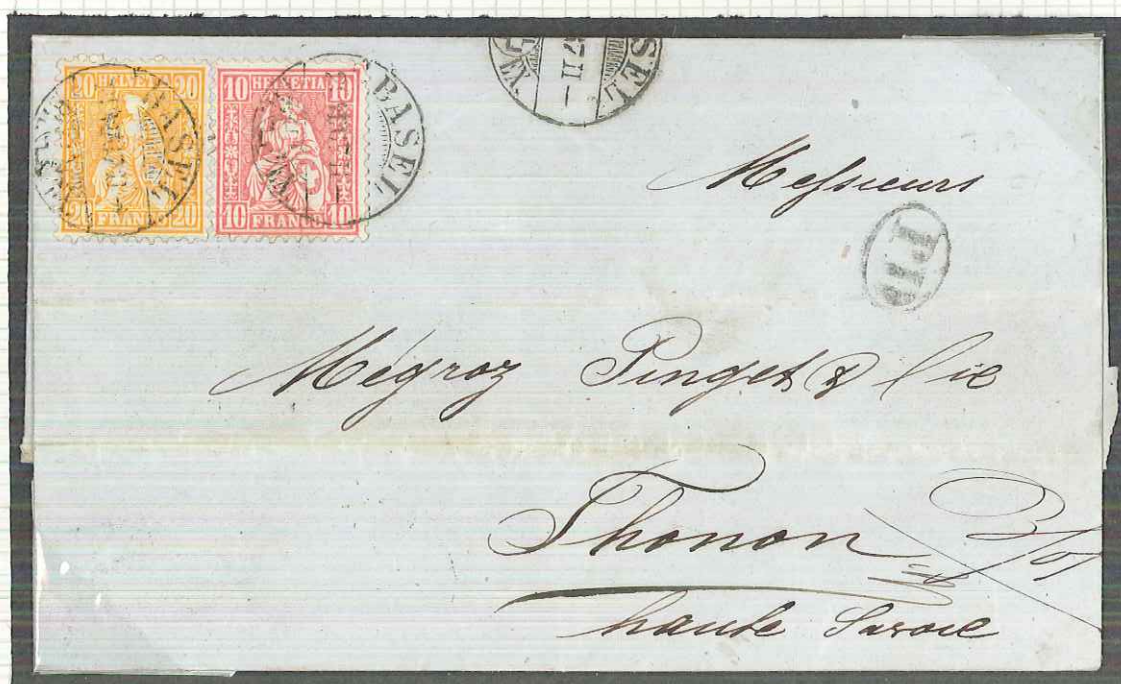 20 HELVETIA 20
20 FRANCO 20
BASEL
10 HELVETIA 10
10 FRANCO 10
BASEL
SEL
17 II –
Messieurs
PD
Mégroz Pinget & Cie
Thonon
haute Savoie